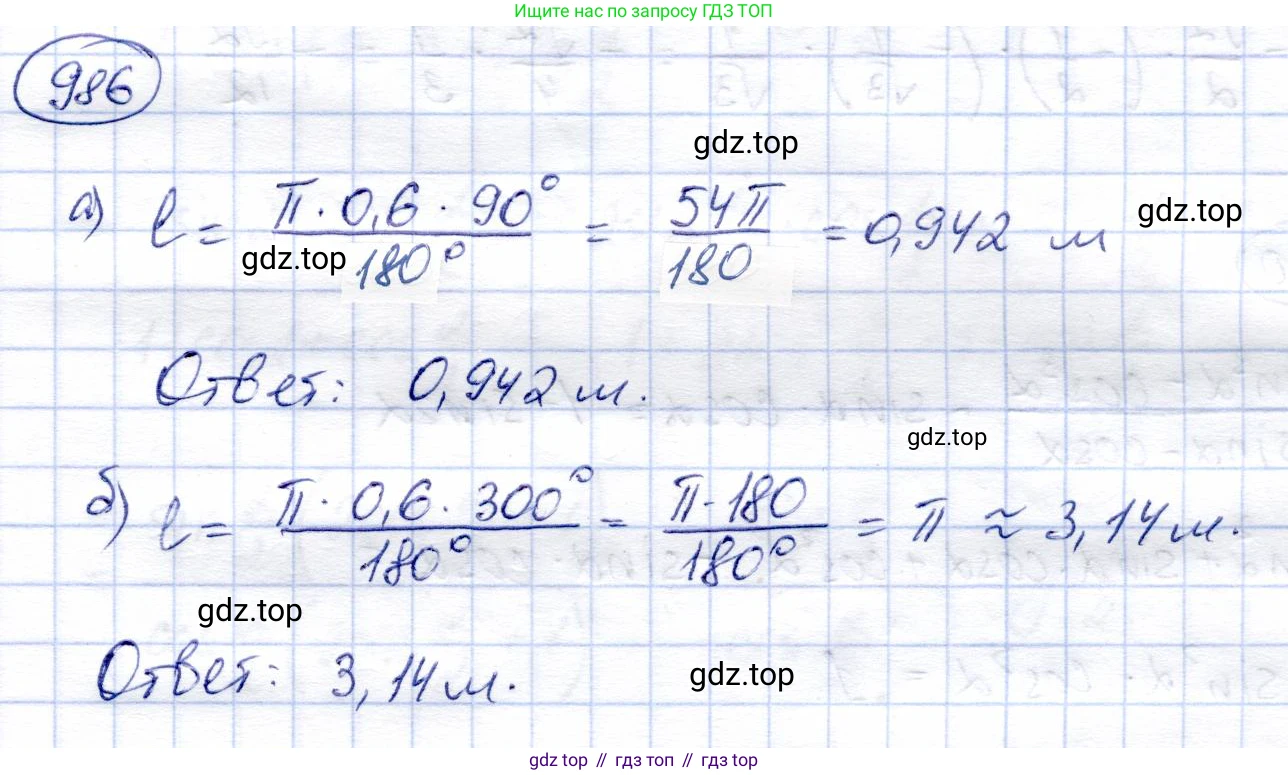 Ищите нас по запросу ГДЗ ТОП
986
gdz.top
а) l = π · 0,6 · 90° / 180° = 54π / 180 = 0,942 м
gdz.top
gdz.top
Ответ: 0,942 м.
gdz.top
б) l = π · 0,6 · 300° / 180° = π · 180 / 180° = π ≈ 3,14 м.
gdz.top
Ответ: 3,14 м.
gdz.top
gdz top // гдз топ // gdz top